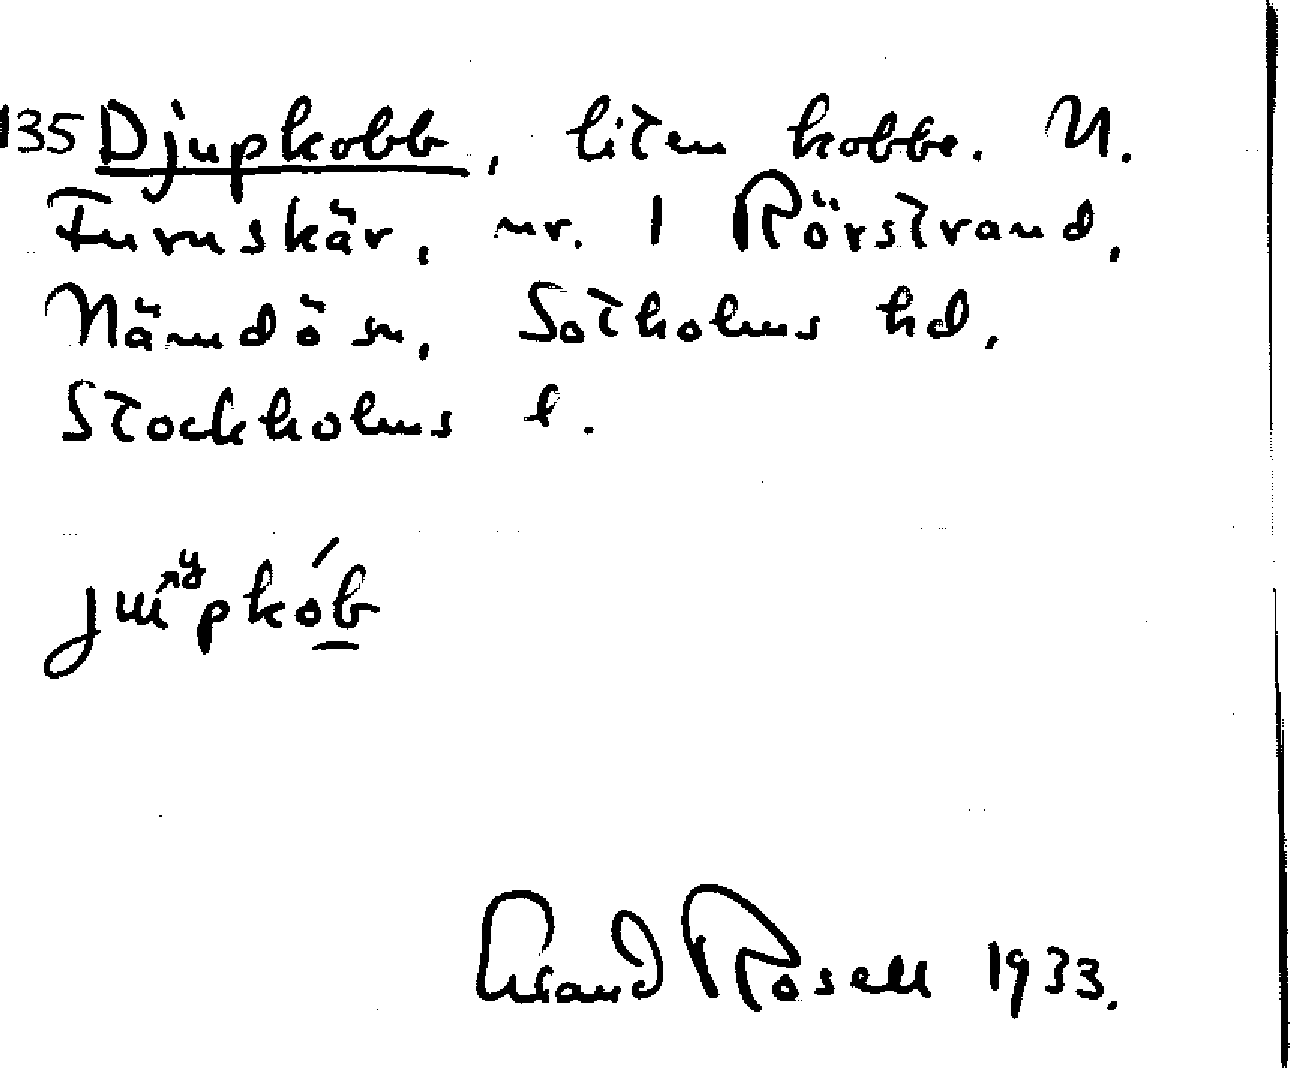 135 Djupkobb, liten kobbe. N.
Furuskär, nr. 1 Rörstrand,
Nämdö sn, Sotholms hd,
Stockholms l.
pkób
Rosell 1933.